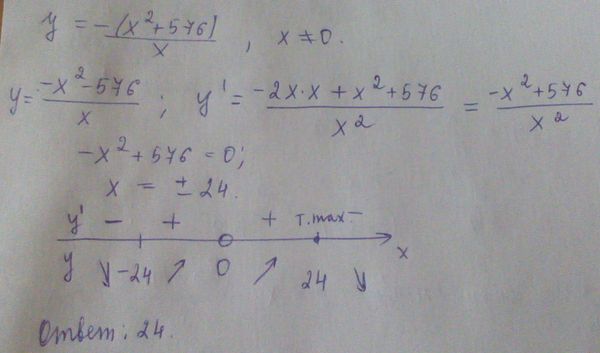 y = -(x²+576)/x , x ≠ 0.
y = -x²-576/x ; y' = -2x·x + x²+576/x² = -x²+576/x²
-x²+576 = 0;
x = ± 24.
y' − + + т.max −
x
y ↘ -24 ↗ 0 ↗ 24 ↘
Ответ: 24.